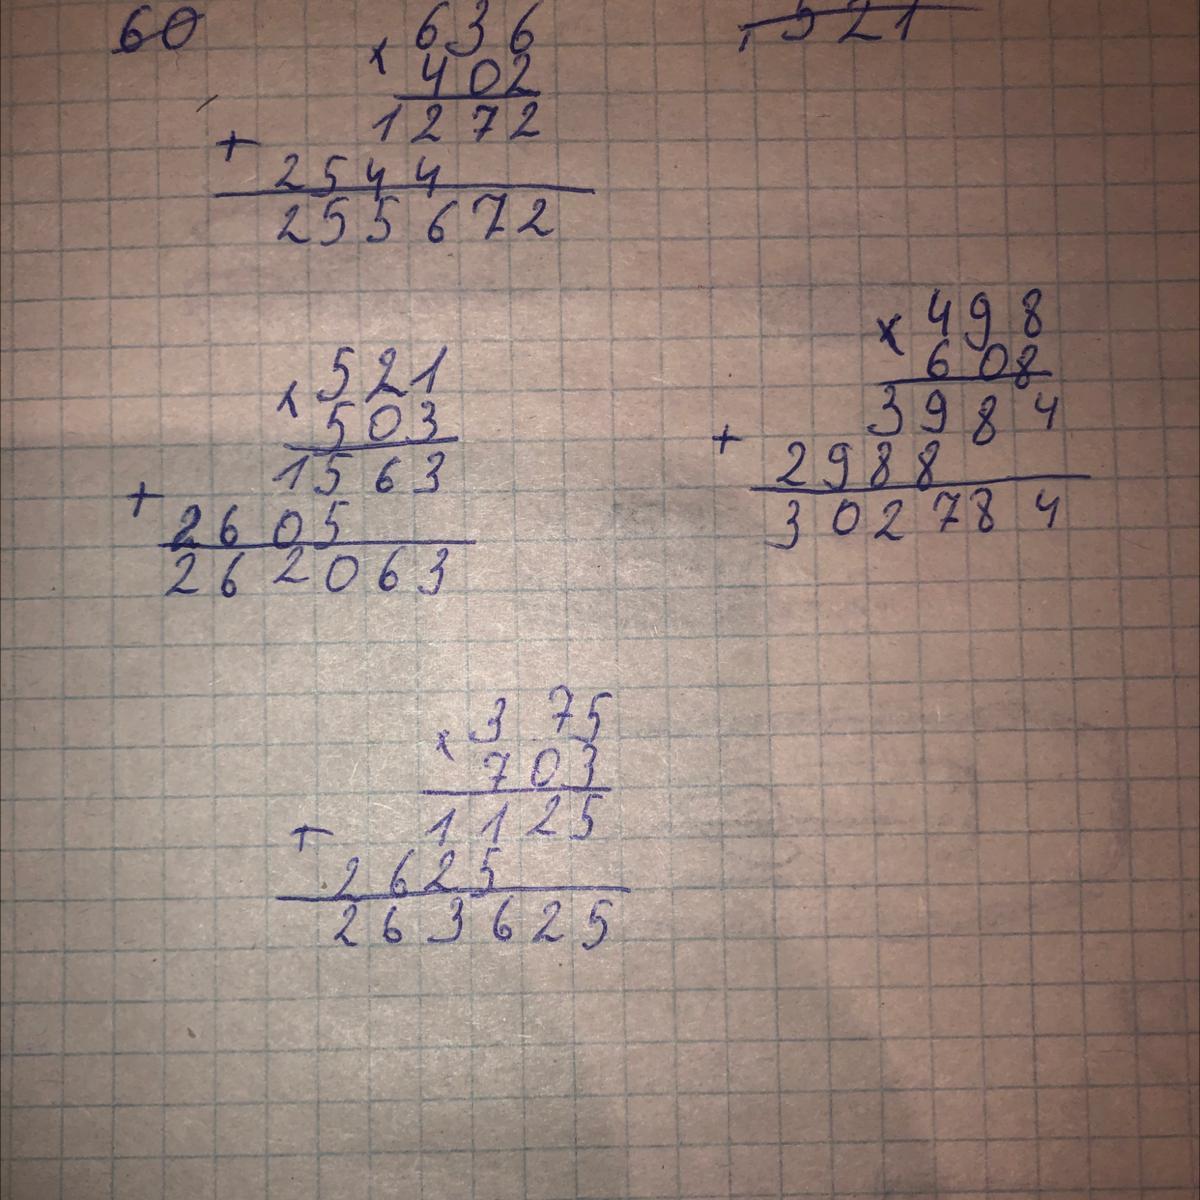 60
636
× 402
1272
+ 2544
255672
521
521
× 503
1563
+ 2605
262063
× 498
608
3984
+ 2988
302784
375
× 703
1125
+ 2625
263625